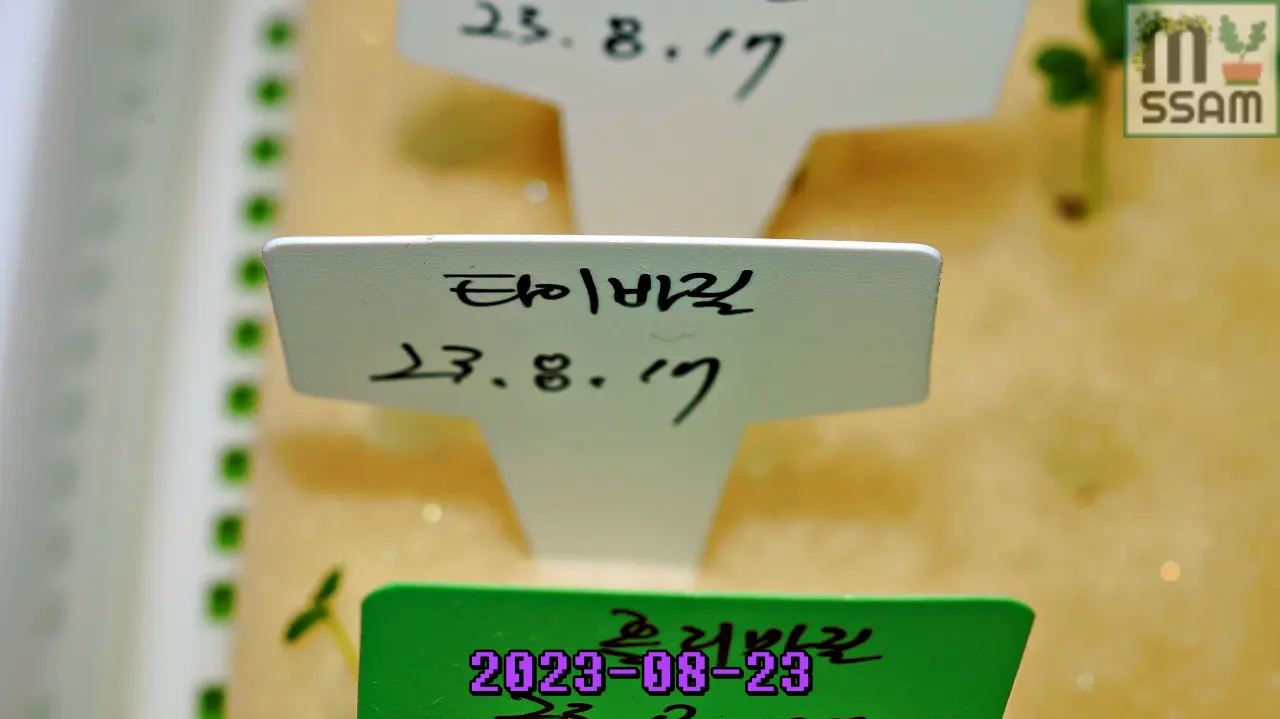 23.8.17
M
SSAM
타이바질
23.8.17
홀리바질
2023-08-23